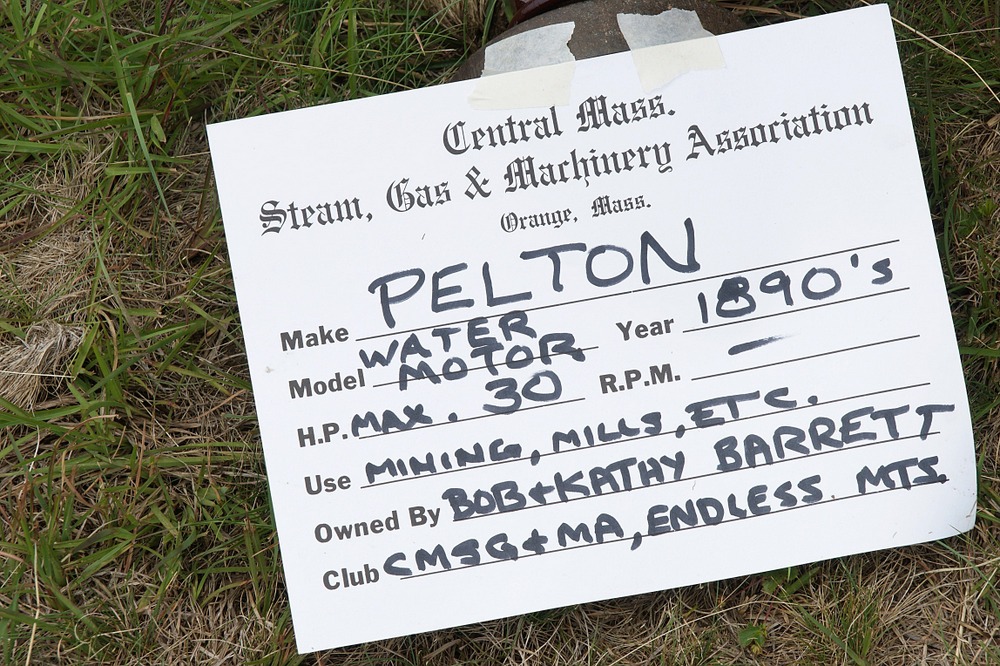 Central Mass.
Steam, Gas & Machinery Association
Orange, Mass.
Make PELTON
Model WATER MOTOR Year 1890's
H.P. MAX. 30 R.P.M. —
Use MINING, MILLS, ETC.
Owned By BOB & KATHY BARRETT
Club CMSG & MA, ENDLESS MTS.